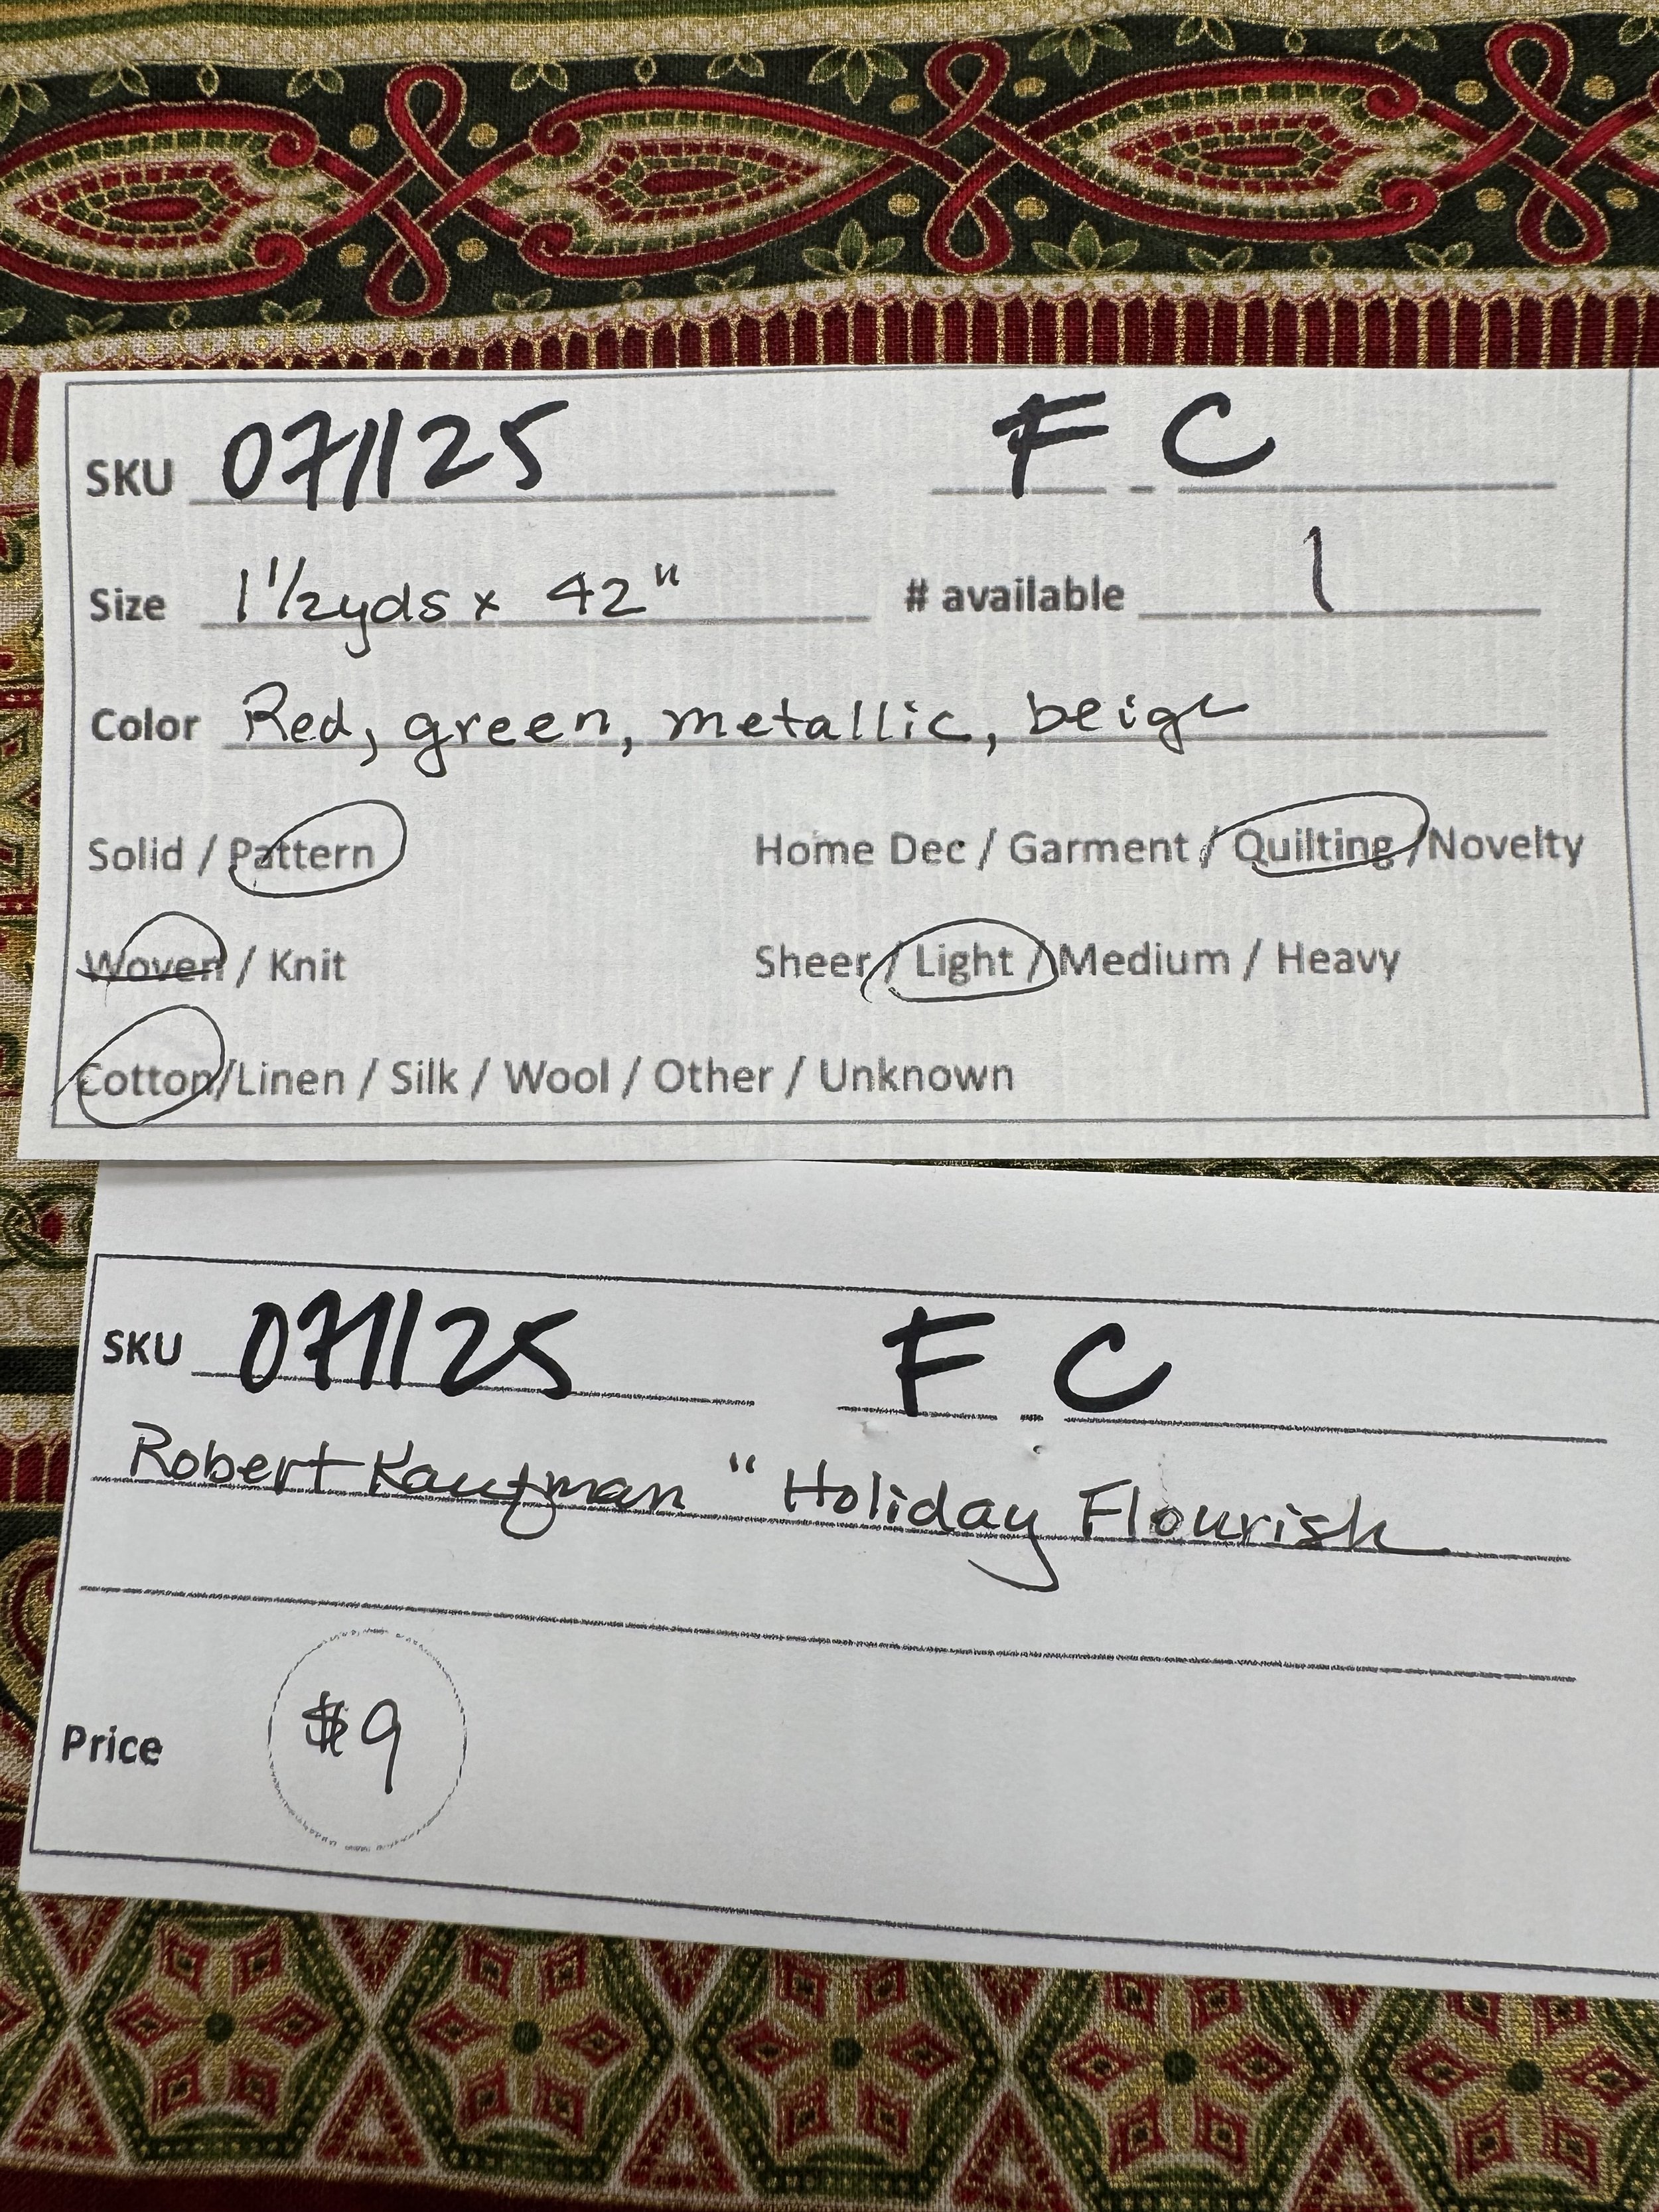 SKU 071125 F - C
Size 1 1/2 yds x 42" # available 1
Color Red, green, metallic, beige
Solid / Pattern Home Dec / Garment / Quilting / Novelty
Woven / Knit Sheer / Light / Medium / Heavy
Cotton/Linen / Silk / Wool / Other / Unknown
SKU 071125 F - C
Robert Kaufman "Holiday Flourish
Price $9